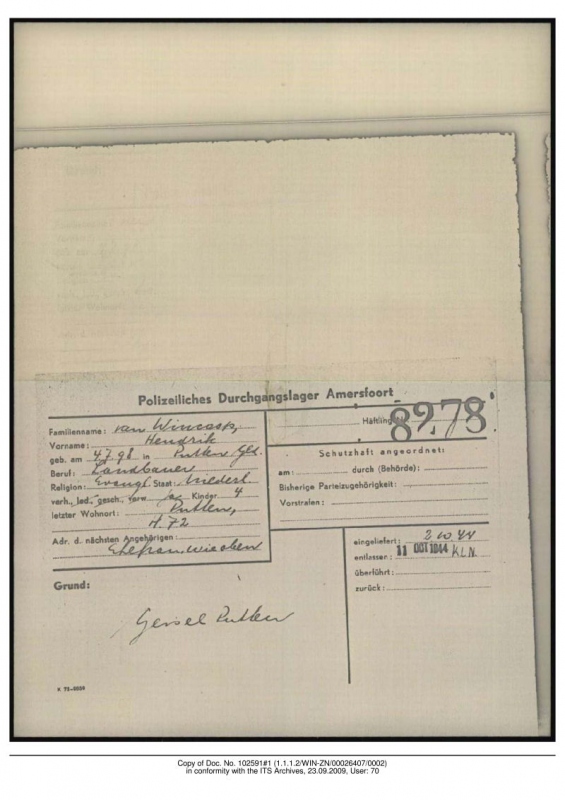 Polizeiliches Durchgangslager Amersfoort
Häftling 8278
Familienname: van Wincoop,
Vorname: Hendrik
geb. am 4.7.98 in Putten Gld.
Beruf: Landbauer
Religion: Evangl. Staat: Niederl.
verh., led., gesch., verw. Kinder 4
letzter Wohnort: Putten,
H. 72
Adr. d. nächsten Angehörigen:
Ehefrau wie oben
Schutzhaft angeordnet:
am: durch (Behörde):
Bisherige Parteizugehörigkeit:
Vorstrafen:
eingeliefert: 2 10 44
entlassen: 11 OCT 1944 K.L.N.
überführt:
zurück:
Grund:
Geisel Putten
Copy of Doc. No. 102591#1 (1.1.1.2/WIN-ZN/00026407/0002)
in conformity with the ITS Archives, 23.09.2009, User: 70